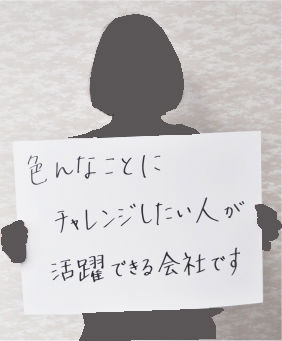 色んなことに
チャレンジしたい人が
活躍できる会社です